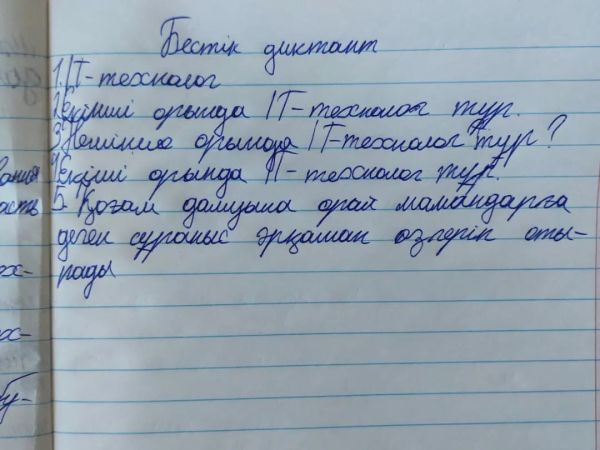 Бестік диктант
1. IT-технолог
2. Екінші орында IT-технолог тұр.
3. Нешінші орында IT-технолог тұр?
4. Екінші орында IT-технолог тұр.
5. Қоғам дамуына орай мамандарға
деген сұраныс әрқашан өзгеріп оты-
рады
ания
асть
ех-
ех-
бу-